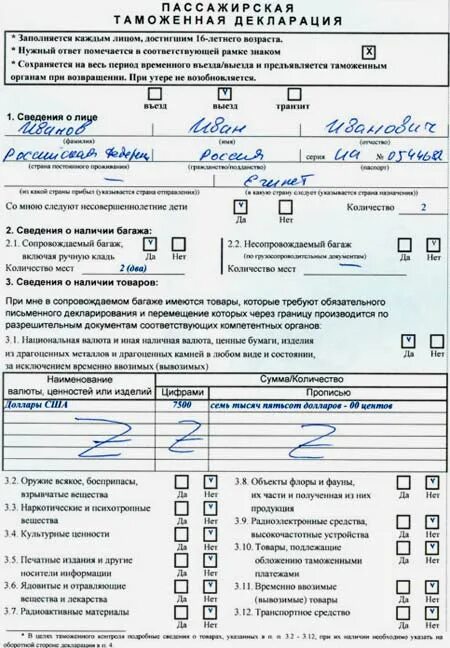 ПАССАЖИРСКАЯ
ТАМОЖЕННАЯ ДЕКЛАРАЦИЯ
* Заполняется каждым лицом, достигшим 16-летнего возраста.
* Нужный ответ помечается в соответствующей рамке знаком X
* Сохраняется на весь период временного въезда/выезда и предъявляется таможенным
органам при возвращении. При утере не возобновляется.
въезд v выезд транзит
1. Сведения о лице
Иванов Иван Иванович
(фамилия) (имя) (отчество)
Российская Федерац Россия серия ИА № 0544682
(страна постоянного проживания) (гражданство/подданство) (паспорт)
— Египет
(из какой страны прибыл (указывается страна отправления)) (в какую страну следует (указывается страна назначения))
Со мною следуют несовершеннолетние дети v Да Нет Количество 2
2. Сведения о наличии багажа:
2.1. Сопровождаемый багаж, v 2.2. Несопровождаемый багаж v
включая ручную кладь Да Нет (по грузосопроводительным документам) Да Нет
Количество мест 2 (два) Количество мест —
3. Сведения о наличии товаров:
При мне в сопровождаемом багаже имеются товары, которые требуют обязательного
письменного декларирования и перемещение которых через границу производится по
разрешительным документам соответствующих компетентных органов:
3.1. Национальная валюта и иная наличная валюта, ценные бумаги, изделия v
из драгоценных металлов и драгоценных камней в любом виде и состоянии, Да Нет
за исключением временно ввозимых (вывозимых)
Наименование Сумма/Количество
валюты, ценностей или изделий Цифрами Прописью
Доллары США 7500 семь тысяч пятьсот долларов - 00 центов
Z Z Z
3.2. Оружие всякое, боеприпасы, v 3.8. Объекты флоры и фауны, v
взрывчатые вещества Да Нет их части и полученная из них Да Нет
продукция
3.3. Наркотические и психотропные v 3.9. Радиоэлектронные средства, v
вещества Да Нет высокочастотные устройства Да Нет
3.4. Культурные ценности v Да Нет 3.10. Товары, подлежащие v
обложению таможенными Да Нет
платежами
3.5. Печатные издания и другие v
носители информации Да Нет
3.6. Ядовитые и отравляющие v 3.11. Временно ввозимые v
вещества и лекарства Да Нет (вывозимые) товары Да Нет
3.7. Радиоактивные материалы v Да Нет 3.12. Транспортное средство v Да Нет
* В целях таможенного контроля подробные сведения о товарах, указанных в п. п 3.2 - 3.12, при их наличии необходимо указать на
оборотной стороне декларации в п. 4.